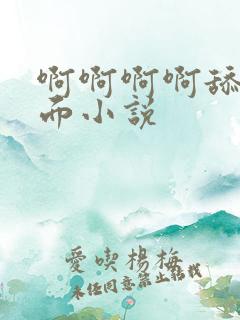 啊啊啊啊舔
而小说
愛喫楊梅
未经同意禁止转载